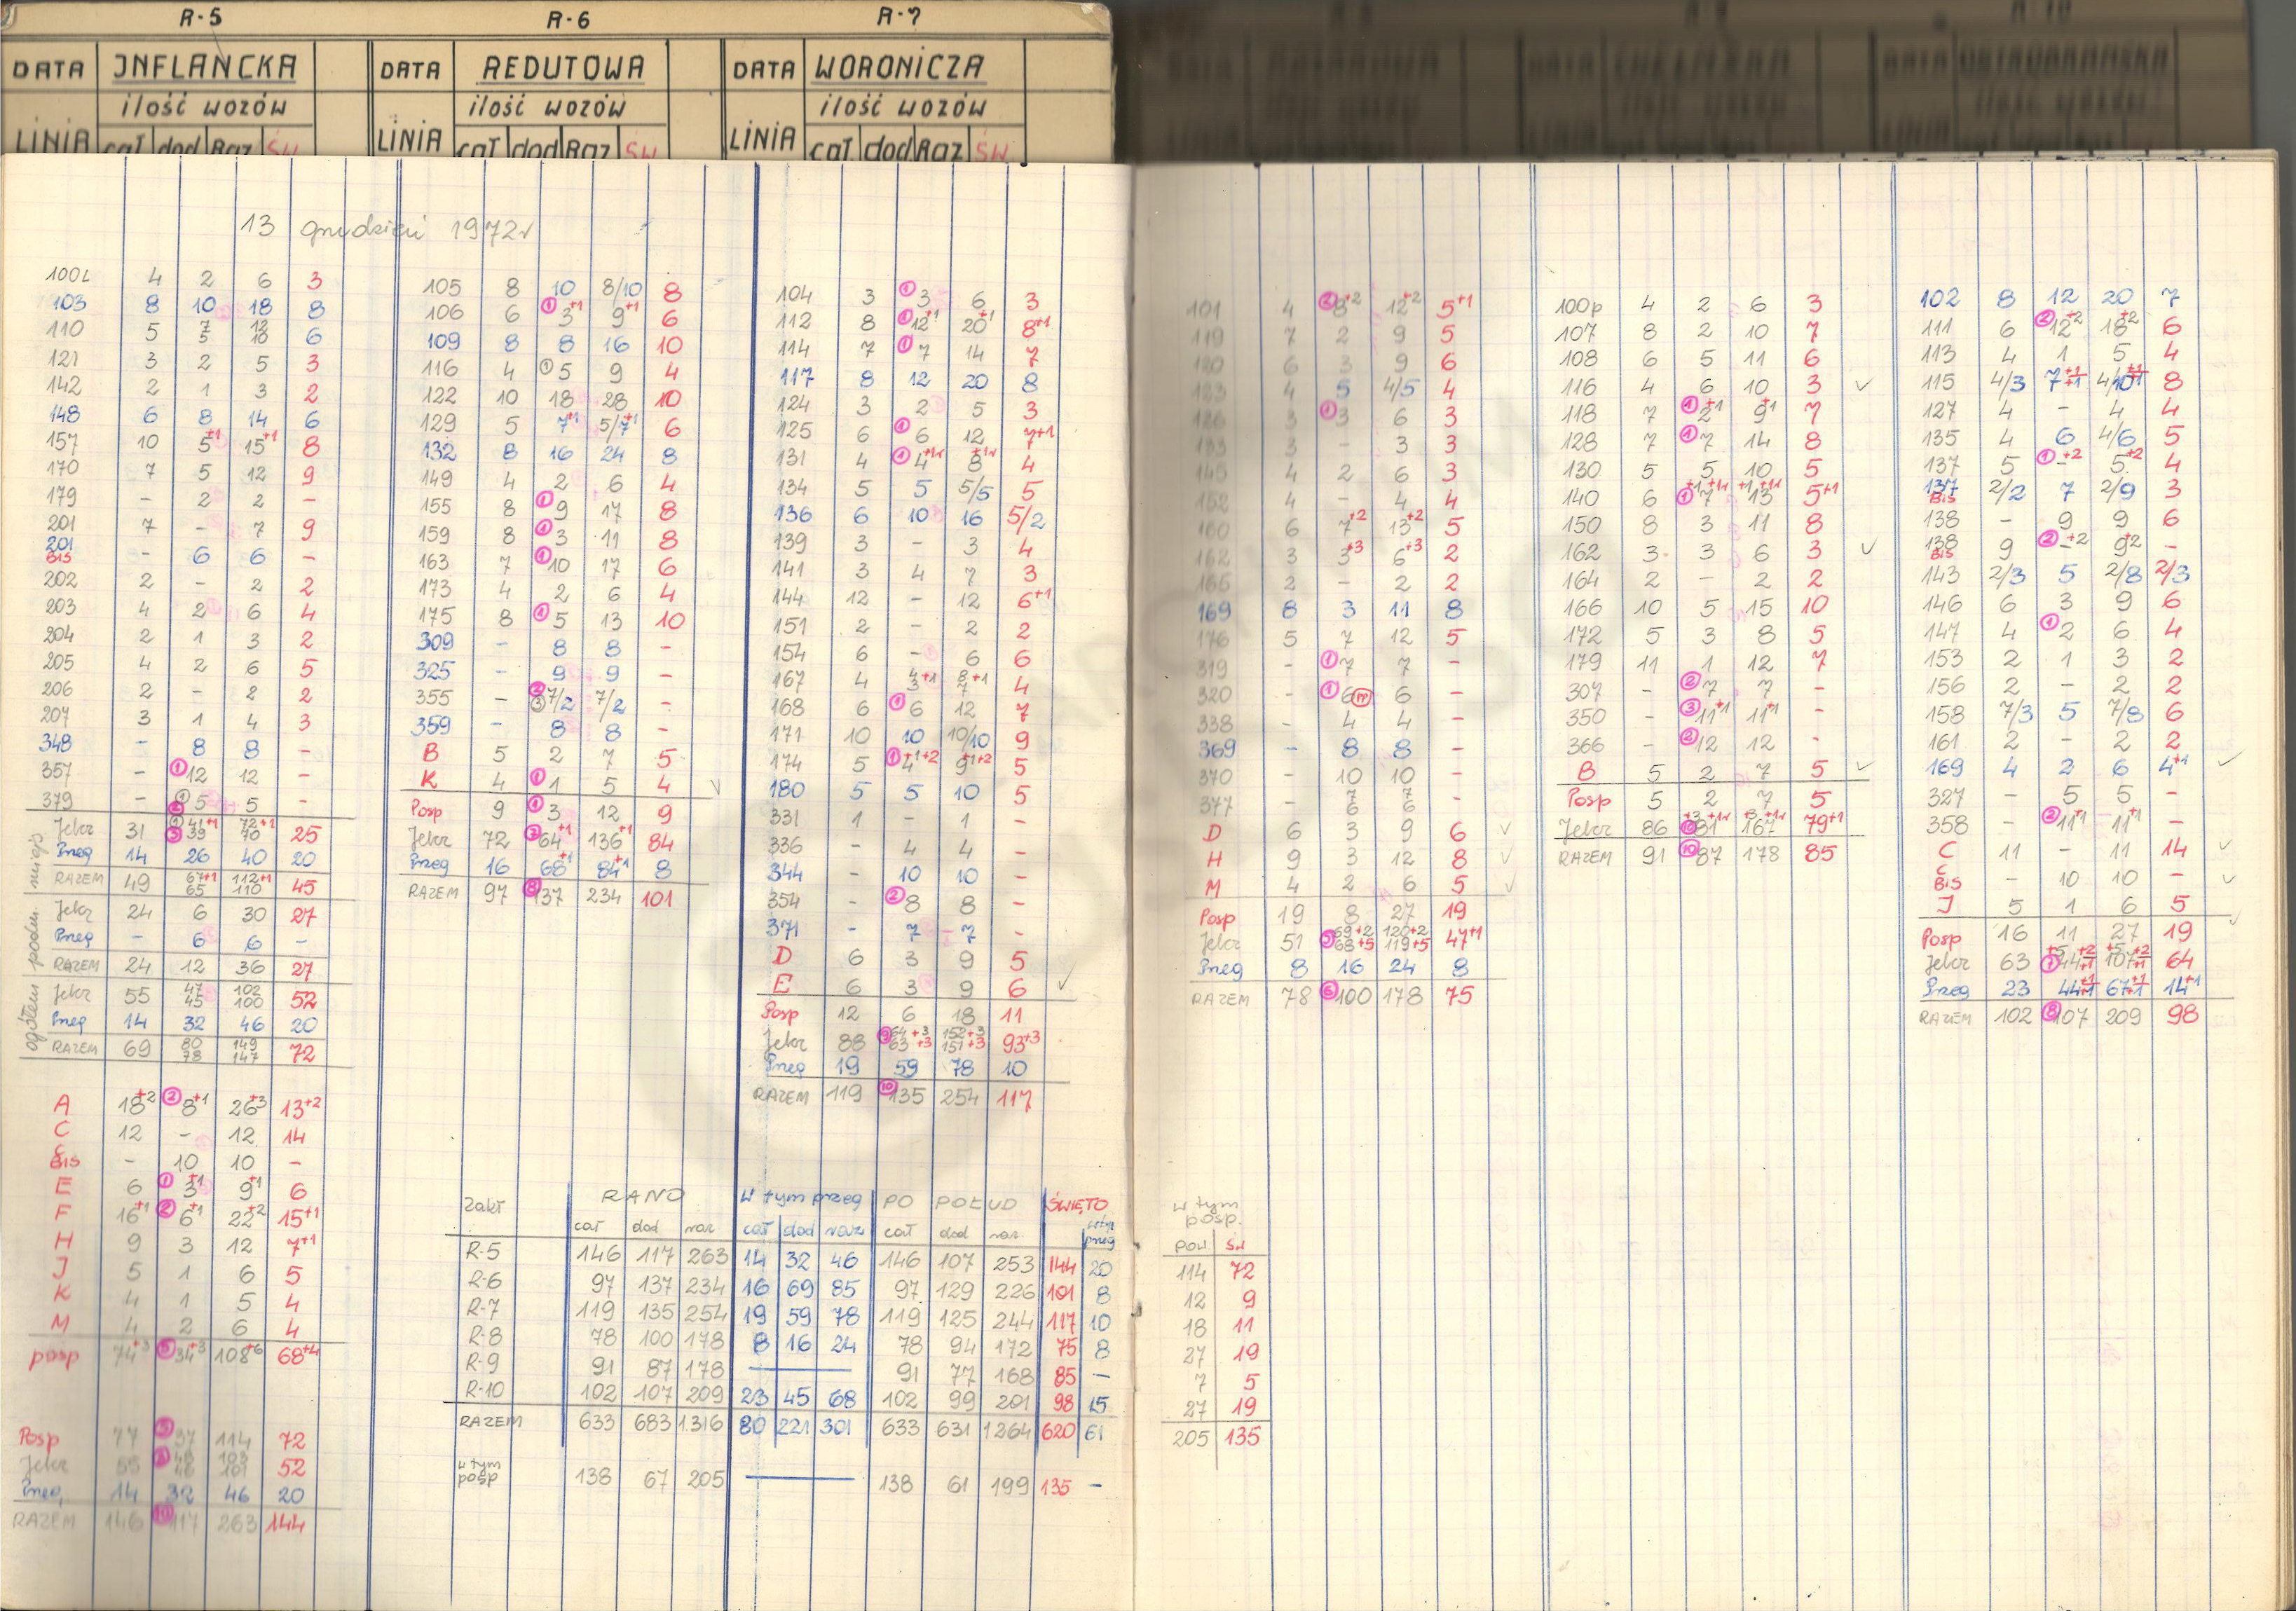 R-5 R-6 R-7
DATA INFLANCKA DATA REDUTOWA DATA WORONICZA
ilość wozów ilość wozów ilość wozów
LINIA cał dod Raz św LINIA cał dod Raz św LINIA cał dod Raz św
13 grudzień 1972r
100L 4 2 6 3
103 8 10 18 8
110 5 7 12 6
5 10
121 3 2 5 3
142 2 1 3 2
148 6 8 14 6
157 10 5+1 15+1 8
170 7 5 12 9
179 - 2 2 -
201 7 - 7 9
201 BIS - 6 6 -
202 2 - 2 2
203 4 2 6 4
204 2 1 3 2
205 4 2 6 5
206 2 - 2 2
207 3 1 4 3
348 - 8 8 -
357 - ① 12 12 -
379 - ① 5 5 -
Jelcz 31 41+1 72+1 25
39 70
Przeg 14 26 40 20
RAZEM 49 67+1 112+1 45
65 110
Jelcz 24 6 30 27
Przeg - 6 6 -
RAZEM 24 12 36 27
Jelcz 55 47 102 52
45 100
Przeg 14 32 46 20
RAZEM 69 80 149 72
78 147
miejs
podm.
ogółem
A 18+2 ② 8+1 26+3 13+2
C 12 - 12 14
C BIS - 10 10 -
E 6 ① 3+1 9+1 6
F 16+1 ② 6+1 22+2 15+1
H 9 3 12 7+1
J 5 1 6 5
K 4 1 5 4
M 4 2 6 4
posp 74+3 ⑤ 34+3 108+6 68+4
Posp 77 37 114 72
Jelcz 55 52
Przeg. 14 32 46 20
RAZEM 146 ⑩ 117 263 144
105 8 10 8/10 8
106 6 ① 3+1 9+1 6
109 8 8 16 10
116 4 ① 5 9 4
122 10 18 28 10
129 5 7+1 5/7+1 6
132 8 16 24 8
149 4 2 6 4
155 8 ① 9 17 8
159 8 ① 3 11 8
163 7 ① 10 17 6
173 4 2 6 4
175 8 ① 5 13 10
309 - 8 8 -
325 - 9 9 -
355 - 7/2 7/2 -
359 - 8 8 -
B 5 2 7 5
K 4 ① 1 5 4 ✓
Posp 9 ① 3 12 9
Jelcz 72 ⑦ 64+1 136+1 84
Przeg 16 68+1 84+1 8
RAZEM 97 ⑧ 137 234 101
104 3 ① 3 6 3
112 8 ① 12+1 20+1 8+1
114 7 ① 7 14 7
117 8 12 20 8
124 3 2 5 3
125 6 ① 6 12 7+1
131 4 ① 4+1r 8+1r 4
134 5 5 5/5 5
136 6 10 16 5/2
139 3 - 3 4
141 3 4 7 3
144 12 - 12 6+1
151 2 - 2 2
154 6 - 6 6
167 4 4+1 8+1 4
3 7
168 6 ① 6 12 7
171 10 10 10/10 9
174 5 ① 4+1+2 9+1+2 5
180 5 5 10 5
331 1 - 1 -
336 - 4 4 -
344 - 10 10 -
354 - ② 8 8 -
371 - 7 7 -
D 6 3 9 5
E 6 3 9 6 ✓
Posp 12 6 18 11
Jelcz 88 64+3 152+3 93+3
63+3 151+3
Przeg 19 59 78 10
RAZEM 119 ⑩ 135 254 117
Zakł RANO w tym przeg PO POŁUD ŚWIĘTO
cał dod raz cał dod raz cał dod raz w tym przeg
R-5 146 117 263 14 32 46 146 107 253 144 20
R-6 97 137 234 16 69 85 97 129 226 101 8
R-7 119 135 254 19 59 78 119 125 244 117 10
R-8 78 100 178 8 16 24 78 94 172 75 8
R-9 91 87 178 — 91 77 168 85 -
R-10 102 107 209 23 45 68 102 99 201 98 15
RAZEM 633 683 1316 80 221 301 633 631 1264 620 61
w tym posp 138 67 205 — 138 61 199 135 -
101 4 ② 8+2 12+2 5+1
119 7 2 9 5
120 6 3 9 6
123 4 5 4/5 4
126 3 ① 3 6 3
133 3 - 3 3
145 4 2 6 3
152 4 - 4 4
160 6 7+2 13+2 5
162 3 3+3 6+3 2
165 2 - 2 2
169 8 3 11 8
176 5 7 12 5
319 - ① 7 7 -
320 - ① 6 6 -
338 - 4 4 -
369 - 8 8 -
370 - 10 10 -
377 - 7 7 -
6 6
D 6 3 9 6 ✓
H 9 3 12 8 ✓
M 4 2 6 5 ✓
Posp 19 8 27 19
Jelcz 51 69+2 120+2 47+1
68+5 119+5
Przeg 8 16 24 8
RAZEM 78 ⑥ 100 178 75
w tym
posp.
pow św
114 72
12 9
18 11
27 19
7 5
27 19
205 135
100p 4 2 6 3
107 8 2 10 7
108 6 5 11 6
116 4 6 10 3 ✓
118 7 ① 2+1 9+1 7
128 7 ① 7 14 8
130 5 5 10 5
140 6 ① 7+1+1r 13+1+1r 5+1
150 8 3 11 8
162 3 3 6 3 ✓
164 2 - 2 2
166 10 5 15 10
172 5 3 8 5
179 11 1 12 7
307 - ② 7 7 -
350 - ③ 11+1 11+1 -
366 - ② 12 12 -
B 5 2 7 5 ✓
Posp 5 2 7 5
Jelcz 86 ⑩ 81+3+1r 167+3+1r 79+1
RAZEM 91 ⑩ 87 178 85
102 8 12 20 7
111 6 ② 12+2 18+2 6
113 4 1 5 4
115 4/3 7+1 8
127 4 - 4 4
135 4 6 4/6 5
137 5 ① -+2 5+2 4
137 BIS 2/2 7 2/9 3
138 - 9 9 6
138 BIS 9 ② -+2 9+2 -
143 2/3 5 2/8 2/3
146 6 3 9 6
147 4 ① 2 6 4
153 2 1 3 2
156 2 - 2 2
158 7/3 5 7/8 6
161 2 - 2 2
169 4 2 6 4+1 ✓
327 - 5 5 -
358 - ② 11+1 11+1 -
C 11 - 11 14 ✓
C BIS - 10 10 - ✓
J 5 1 6 5 ✓
Posp 16 11 27 19
Jelcz 63 64
Przeg 23 44+1 67+1 14+1
RAZEM 102 ⑧ 107 209 98